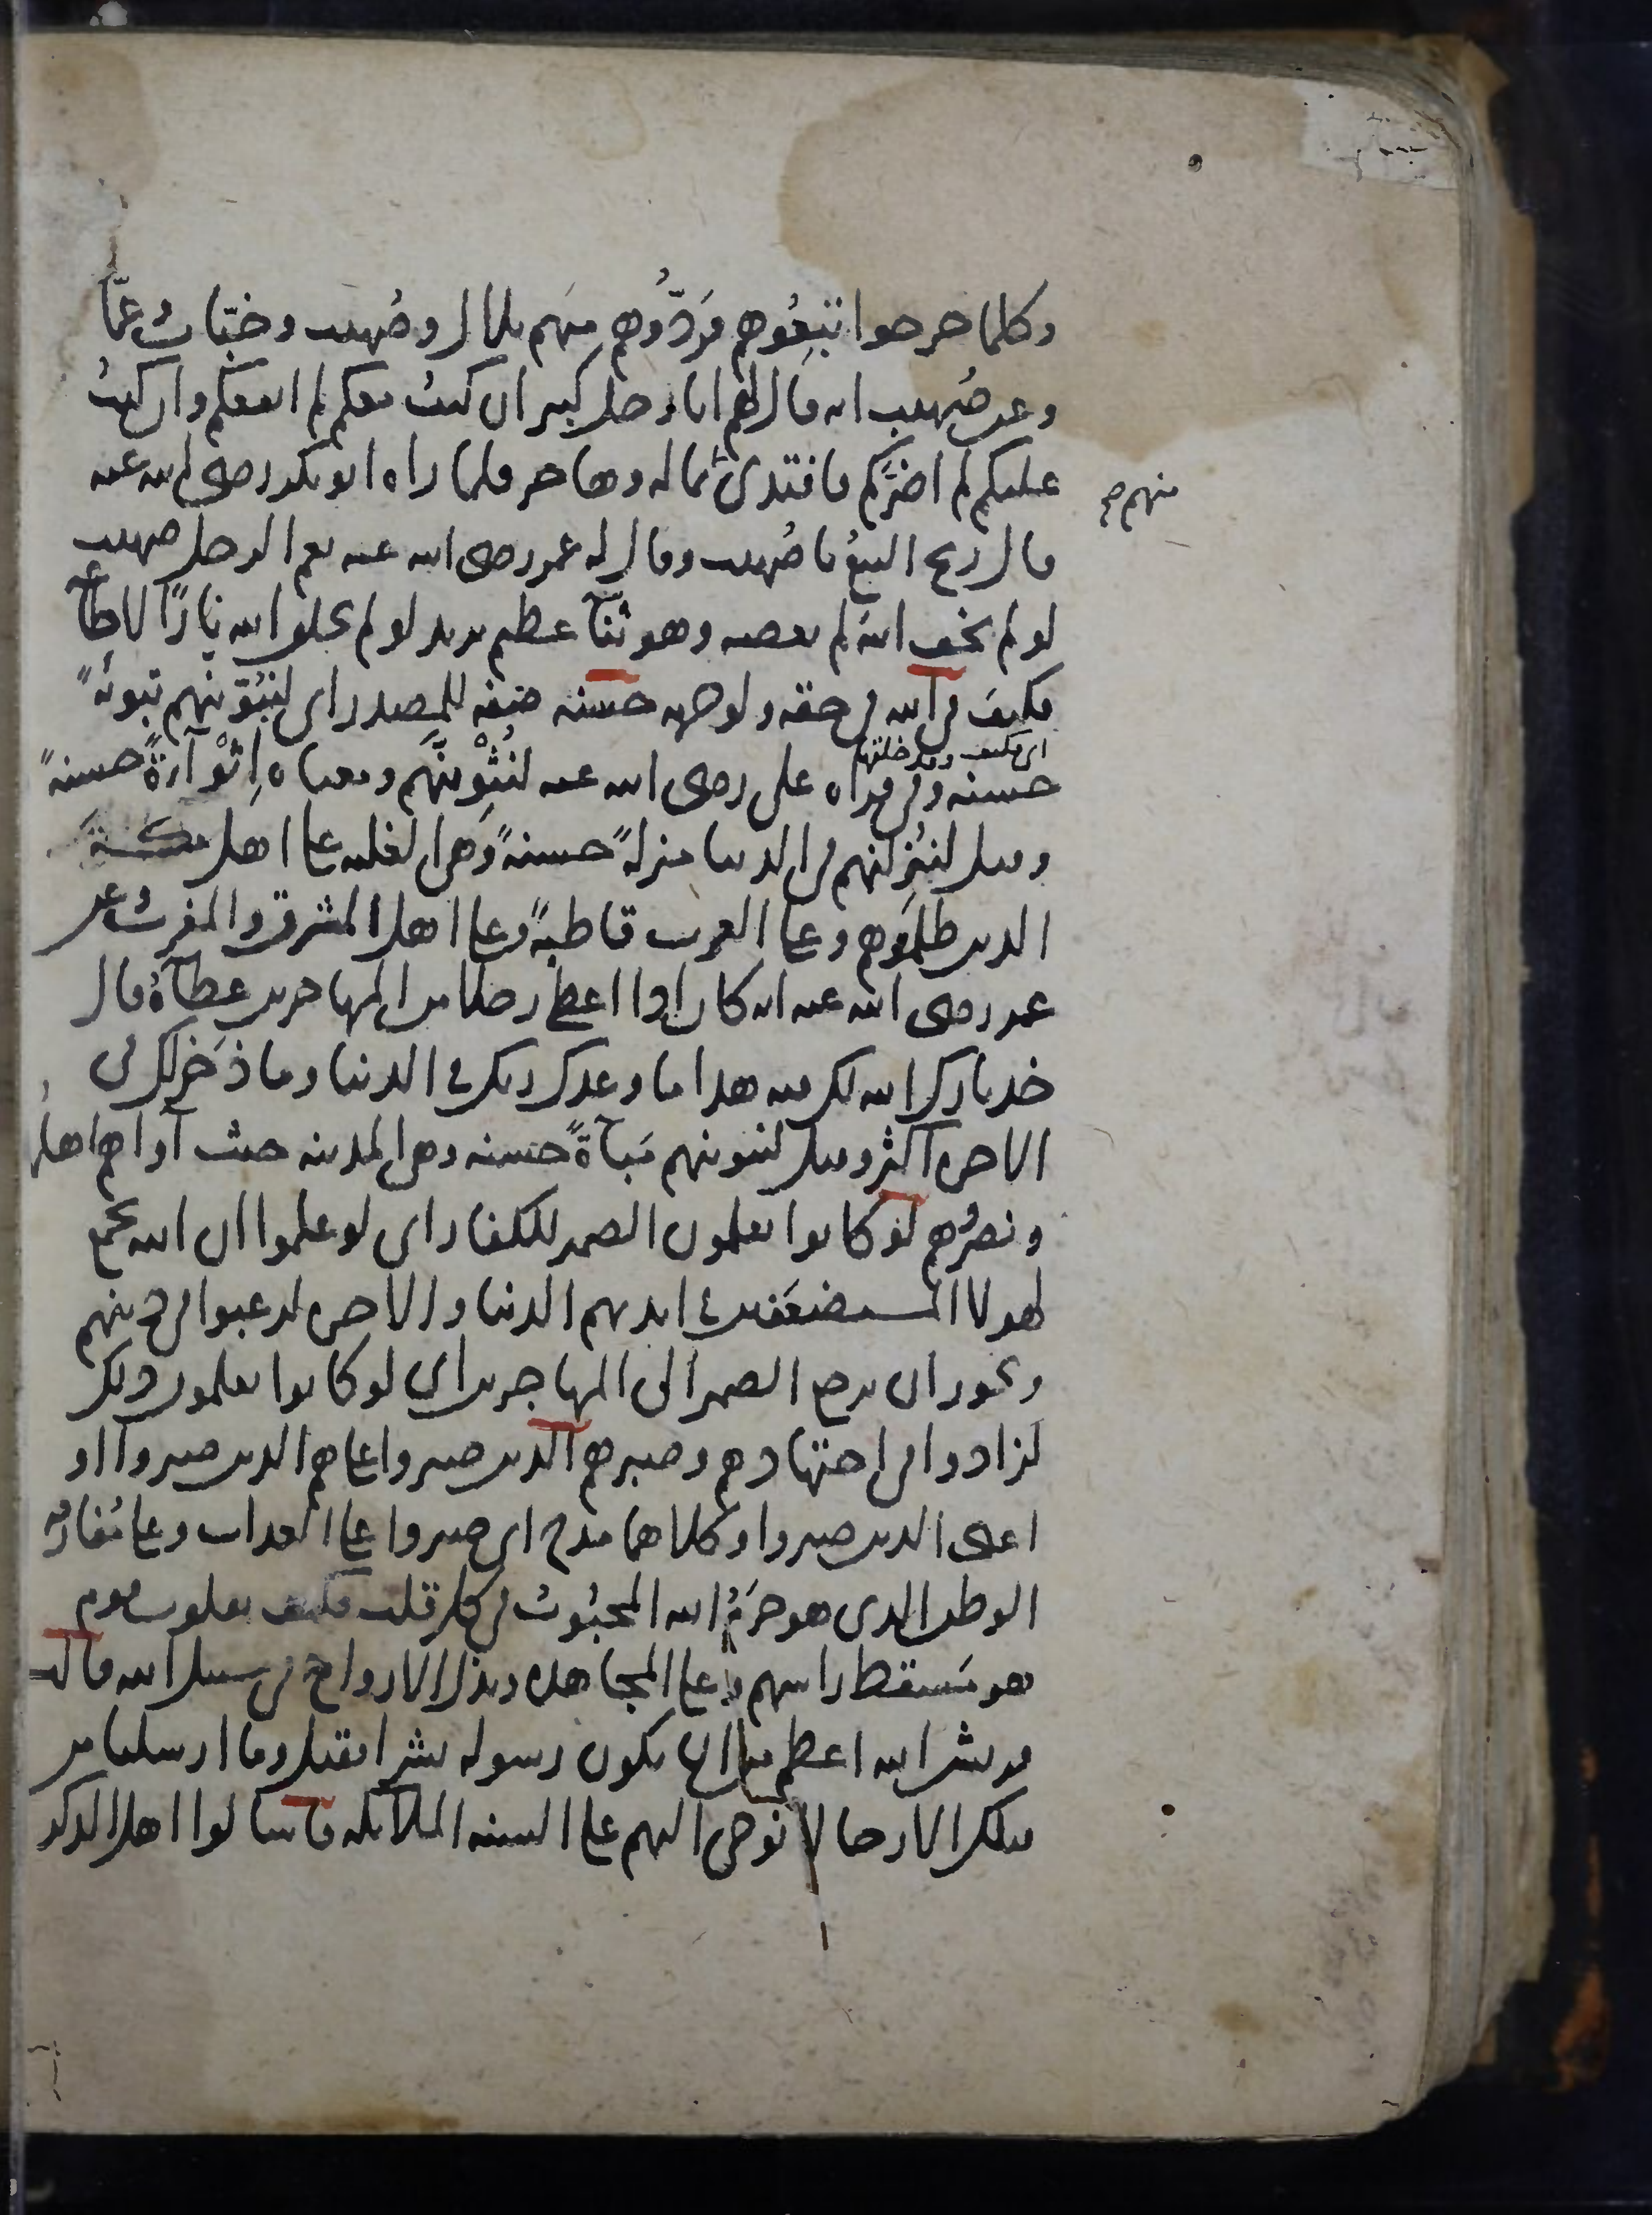 وكلما خرجوا تتبعوهم فردّوهم منهم بلال وصُهيب وخبّاب وعمّار
وعن صُهيب انه قال لهم انا رجل كبير ان كنتُ معكم لم انفعكم وان كنتُ
عليكم لم اضرّكم فافتدى بماله وهاجر فلما راه ابو بكر رضى الله عنه
منهم صح
قال ربح البيعُ يا صُهيب وقال له عمر رضى الله عنه نعم الرجل صهيب
لو لم يخف الله لم يعصه وهو ثنآ عظيم يريد لو لم يخلق الله نارًا لاطاعه
فكيف فى الله فى حقه ولوجهه حسنه صفه للمصدر اى لنُبَوِّئنهم تبوئهً
اى فكيف وقد خلقها
حسنه وفى قراه على رضى الله عنه لنُثْوِيَنَّهم ومعناه اِثْوآءةً حسنهً
وقيل لننزلنهم فى الدنيا منزلهً حسنهً وهى الغلبه على اهل مكة
الذين ظلمَوهم وعلى العرب قاطبهً وعلى اهل المشرق والمغرب وعن
عمر رضى الله عنه انه كان اذا اعطى رجلا من المهاجرين عطآءً قال
خذ بارك الله لك فيه هذا ما وعدك ربك فى الدنيا وما ذخر لك فى
الاخره اكثر وقيل لنبوئنهم مَباءةً حسنه وهى المدينه حيث آواهم اهلها
ونصرُوهم لو كانوا يعلمون الضمير للكفار اى لو علموا ان الله يجمع
لهولا المستضعَفين فى ايديهم الدنيا والاخره لرغبوا فى دينهم
ويجوز ان يرجع الضمير الى المهاجرين اى لو كانوا يعلمون ذلك
لزادوا فى اجتهادهم وصبرهم الذين صبروا على هم الذين صبروا او
اعنى الذين صبروا وكلاهما مدح اى صبروا على العذاب وعلى مُفارقه
الوطن الذى هو حرَمُ الله المحبُوبُ فى كل قلب فكيف بقلوب قوم
هو مَسقط راسهم وعلى المجاهده وبذل الارواح فى سبيل الله قالت
قريش الله اعظم من ان يكون رسوله بشرا فقيل وما ارسلنا من
قبلك الا رجالا نوحى اليهم على السنه الملآئكه فاسالوا اهل الذكر